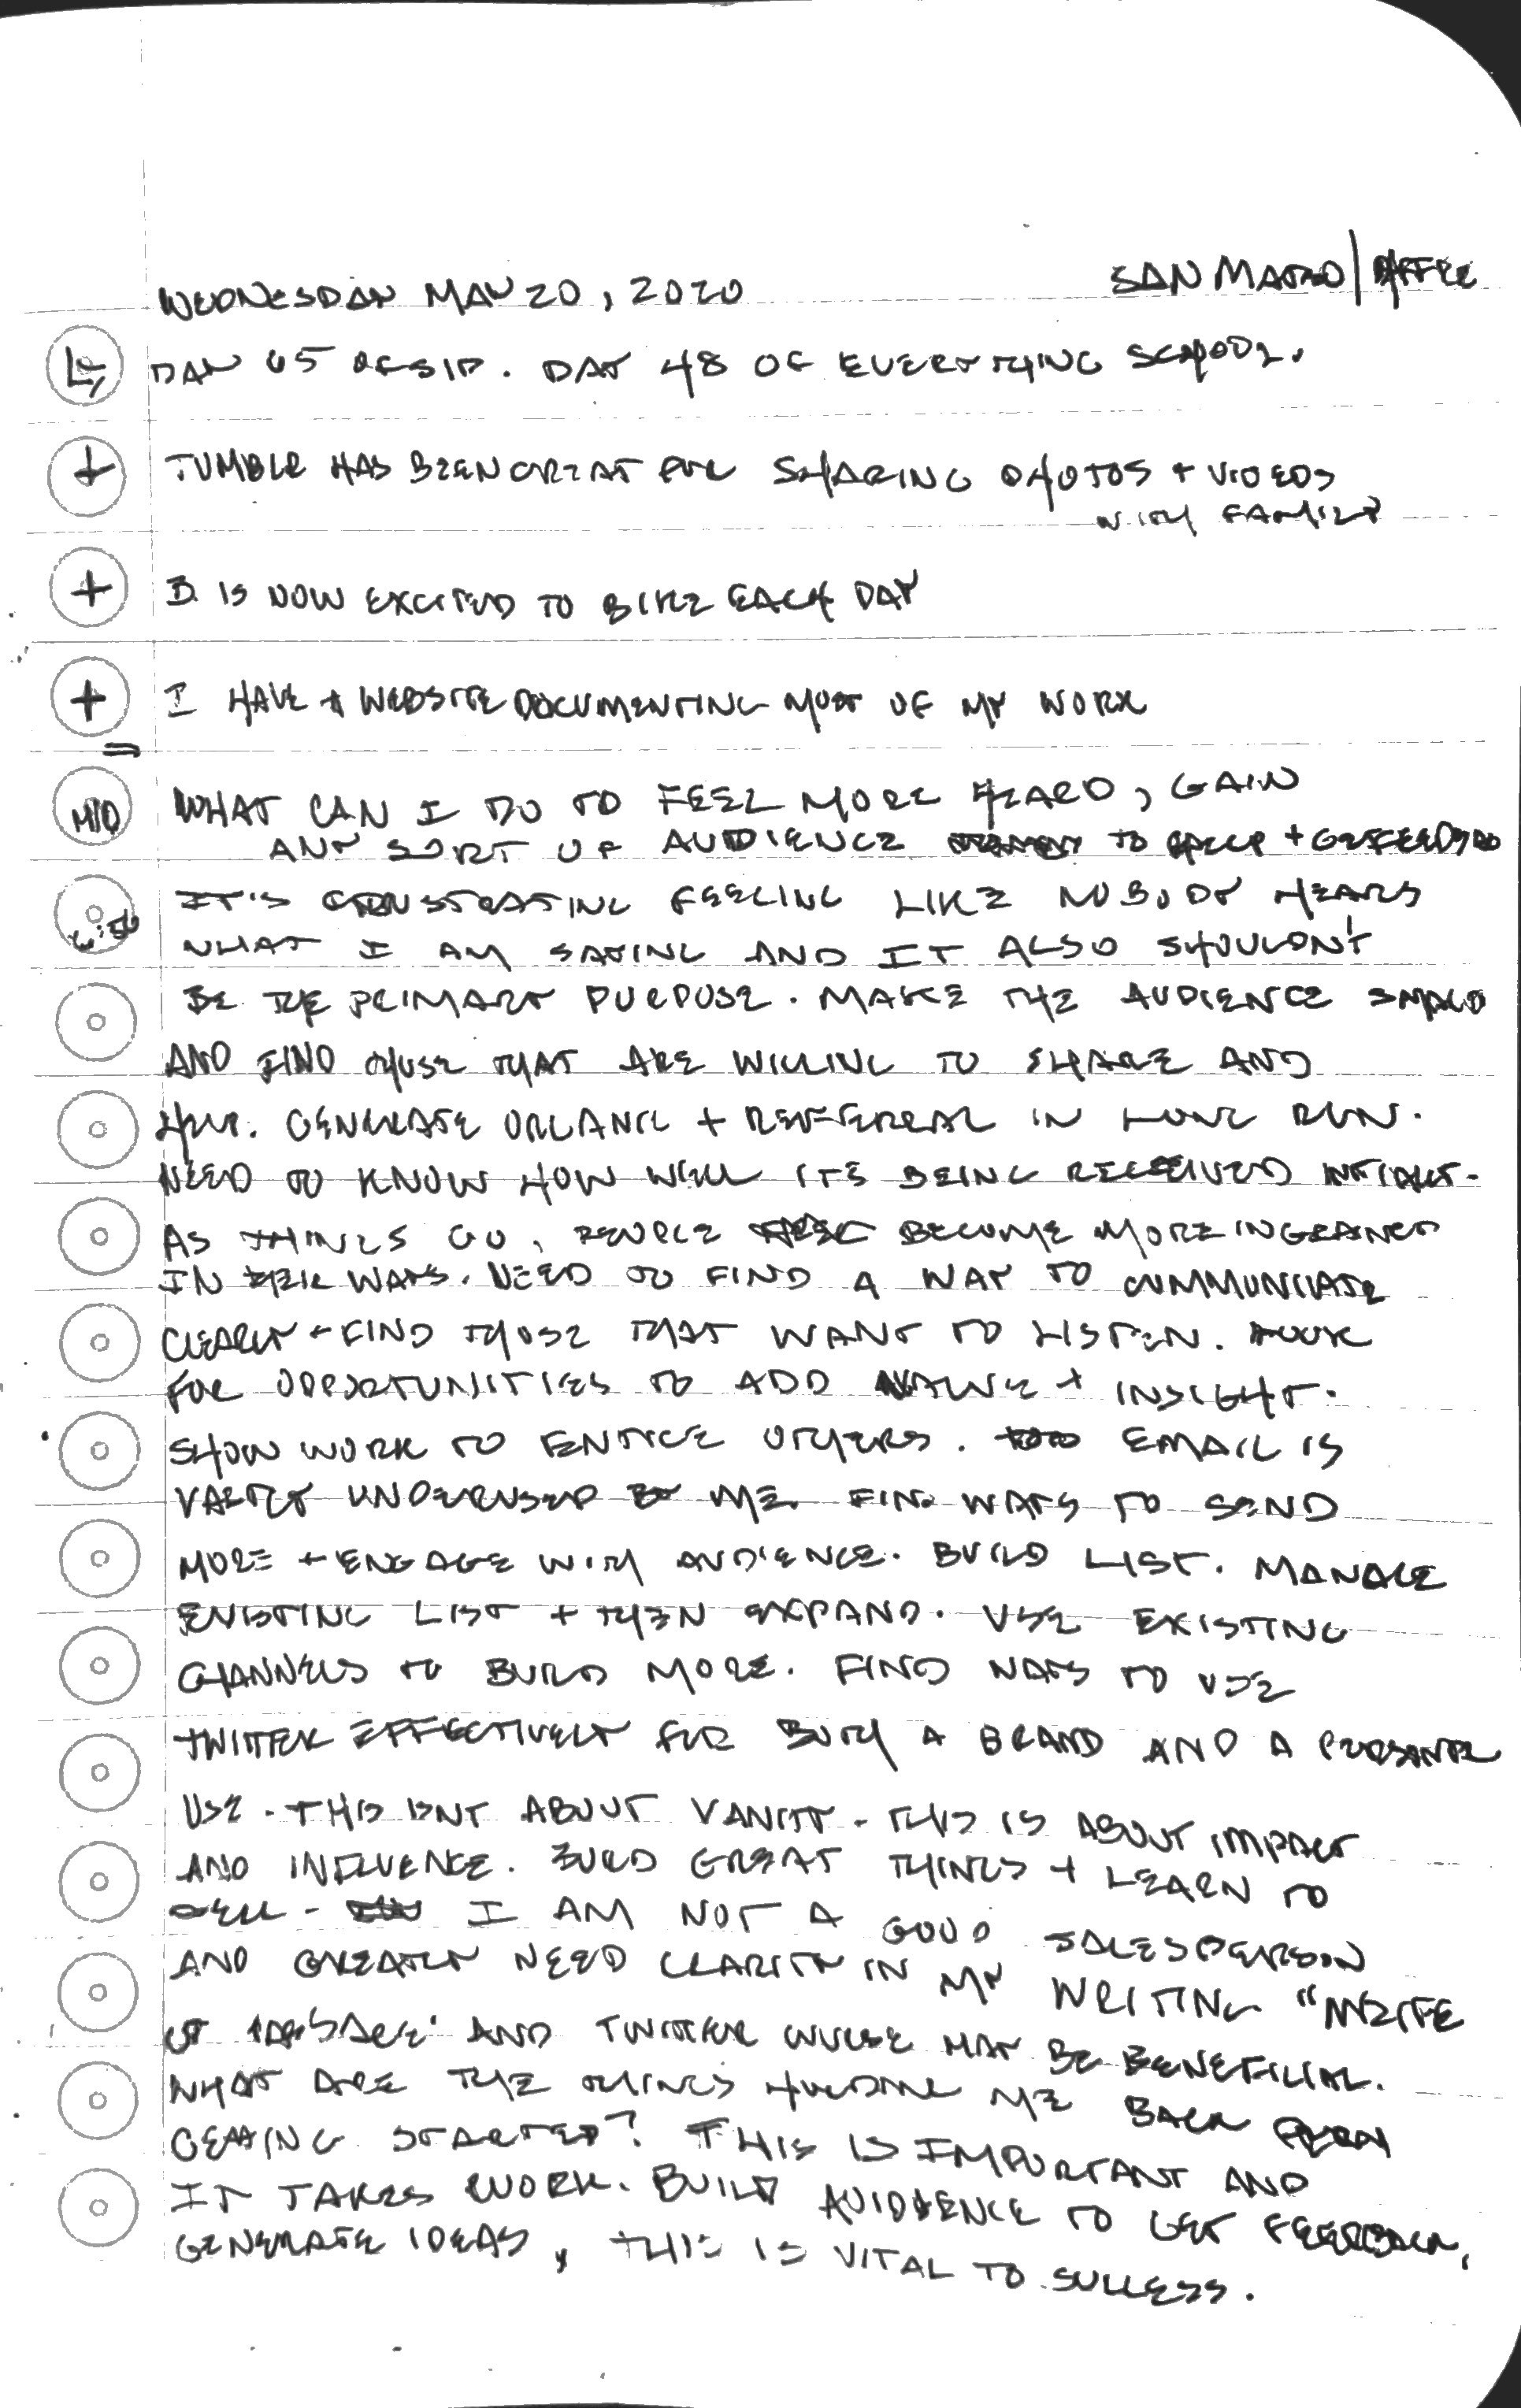 WEDNESDAY MAY 20, 2020
SAN MATEO / OFFICE
DAY 65 OF SIP. DAY 48 OF EVERYTHING
+ TUMBLR HAS BEEN GREAT FOR SHARING PHOTOS + VIDEOS
WITH FAMILY
+ B. IS NOW EXCITED TO BIKE EACH DAY
+ I HAVE A WEBSITE DOCUMENTING MOST OF MY WORK
WHAT CAN I DO TO FEEL MORE HEARD, GAIN
ANY SORT OF AUDIENCE TO +
IT'S FRUSTRATING FEELING LIKE NOBODY HEARS
WHAT I AM SAYING AND IT ALSO SHOULDN'T
BE THE PRIMARY PURPOSE. MAKE THE AUDIENCE SMALL
AND FIND THOSE THAT ARE WILLING TO SHARE AND
HELP. GENERATE ORGANIC + REFFERAL IN LONG RUN.
NEED TO KNOW HOW WELL ITS BEING RECEIVED
AS THINGS GO, PEOPLE BECOME MORE INGRAINED
IN THEIR WAYS. NEED TO FIND A WAY TO COMMUNICATE
CLEARLY + FIND THOSE THAT WANT TO LISTEN. LOOK
FOR OPPORTUNITIES TO ADD VALUE + INSIGHT.
SHOW WORK TO ENTICE OTHERS. EMAIL IS
VASTLY UNDERUSED BY ME. FIND WAYS TO SEND
MORE + ENGAGE WITH AUDIENCE. BUILD LIST. MANAGE
EXISTING LIST + THEN EXPAND. USE EXISTING
CHANNELS TO BUILD MORE. FIND WAYS TO USE
TWITTER EFFECTIVELY FOR BOTH A BRAND AND A PERSONAL
USE. THIS ISNT ABOUT VANITY. THIS IS ABOUT IMPACT
AND INFLUENCE. BUILD GREAT THINGS + LEARN TO
SELL. I AM NOT A GOOD SALESPERSON
AND GREATLY NEED CLARITY IN MY WRITING
AND TWITTER MAY BE BENEFICIAL.
WHAT ARE THE THINGS HOLDING ME BACK FROM
GETTING STARTED? THIS IS IMPORTANT AND
IT TAKES WORK. BUILD AUIDIENCE TO GET FEEDBACK,
GENERATE IDEAS, THIS IS VITAL TO SUCCESS.